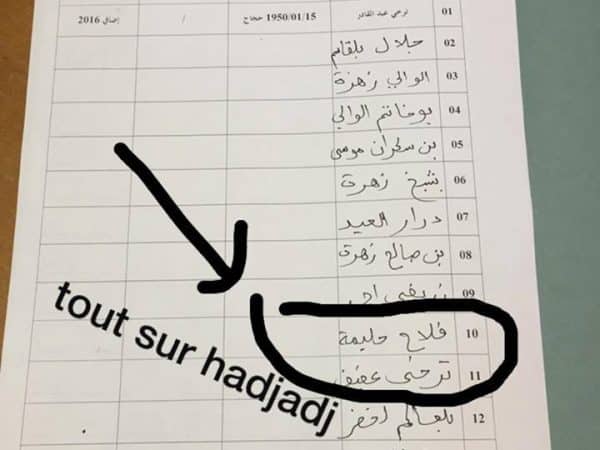 01 ترحي عبد القادر 1950/01/15 حجاج / إضافي 2016
02 جلال بلقاسم
03 الوالي زهرة
04 بوخاتم الوالي
05 بن سكران موسى
06 بشيخ زهرة
07 درار العيد
08 بن صالح زهرة
09
10 فلاح حليمة
11 ترحي عفيف
12 بلعالم لخضر
tout sur hadjadj